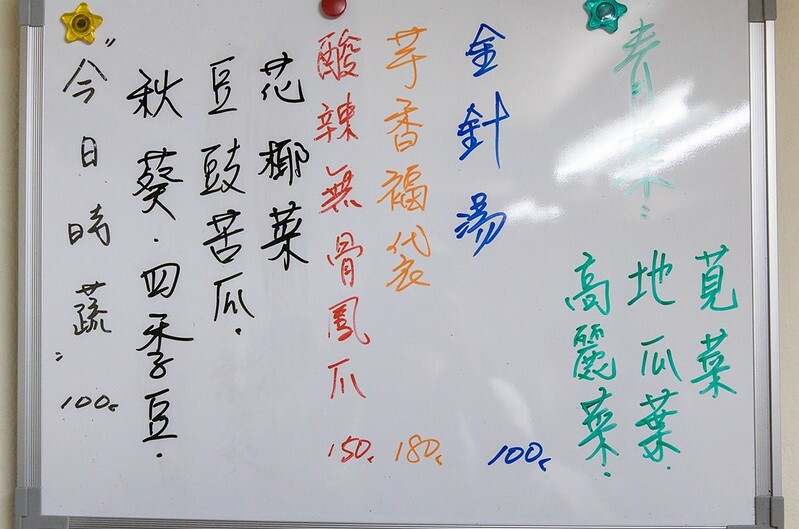 青菜:
莧菜
地瓜葉.
高麗菜.
金針湯 100.
芋香福袋 180.
酸辣無骨鳳爪 150.
花椰菜
豆豉苦瓜.
秋葵.四季豆.
"今日時蔬" 100.